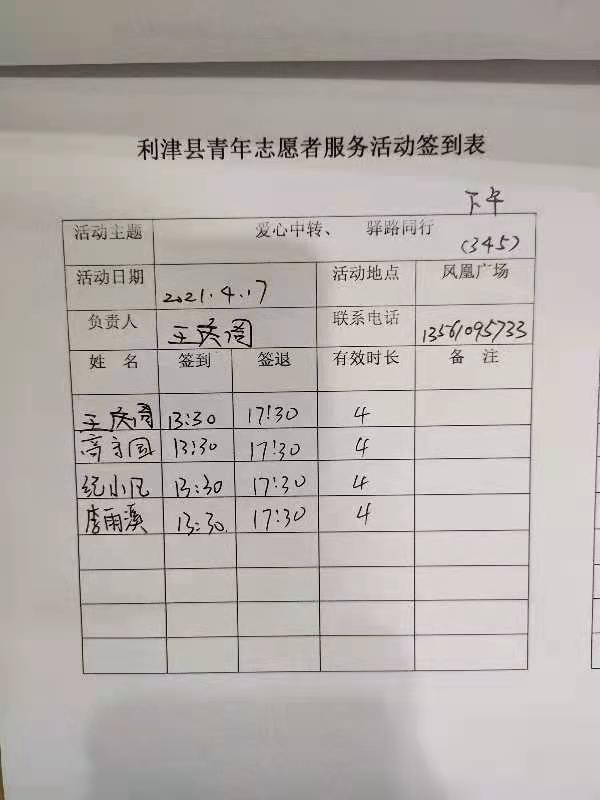 利津县青年志愿者服务活动签到表
下午
活动主题 爱心中转、 驿路同行 (345)
活动日期 2021.4.17 活动地点 凤凰广场
负责人 王庆阁 联系电话 13561095733
姓 名 签到 签退 有效时长 备 注
王庆阁 13:30 17:30 4
高守国 13:30 17:30 4
纪小凡 13:30 17:30 4
李雨溪 13:30 17:30 4